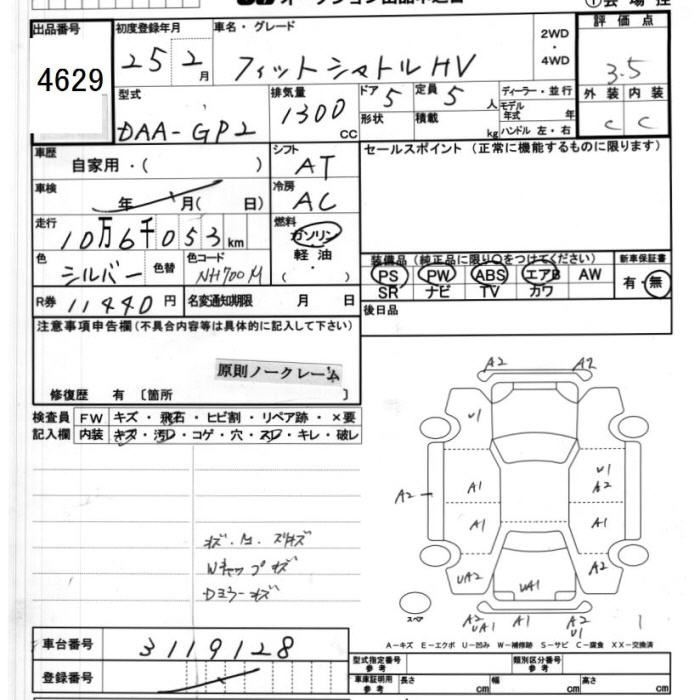 オークション出品申込書
出品番号 4629
初度登録年月 25 2月
車名・グレード フィットシャトルHV
2WD・4WD
評価点 3.5
外装 C 内装 C
型式 DAA-GP2
排気量 1300 CC
ドア 5 定員 5 人
形状 積載 kg
ディーラー・並行
モデル年式 年
ハンドル 左・右
車歴 自家用・( )
シフト AT
セールスポイント(正常に機能するものに限ります)
車検 年 月( 日)
冷房 AC
走行 10万6千053km
燃料 ガソリン 軽油・( ・ )
色 シルバー 色替 色コード NH700M
装備品(純正品に限り○をつけてください)
新車保証書
PS PW ABS エアB AW
有・無
SR ナビ TV カワ
R券 11440円 名変通知期限 月 日
後日品
注意事項申告欄(不具合内容等は具体的に記入して下さい)
原則ノークレーム
修復歴 有〔箇所 〕
検査員 FW キズ・飛石・ヒビ割・リペア跡・×要
記入欄 内装 キズ・汚レ・コゲ・穴・スレ・キレ・破レ
A2 A2
U1
A1 U1 A2
A2
A1 A1
UA2 UA1 A2
スペア
A2 UA1 A1 A2 U1
Wキャップキズ
Dミラーキズ
A-キズ E-エクボ U-凹み W-補修跡 S-サビ C-腐食 XX-交換済
車台番号 3119128
登録番号
型式指定番号 参考 類別区分番号 参考
車庫証明用 参考 長さ cm 幅 cm 高さ cm